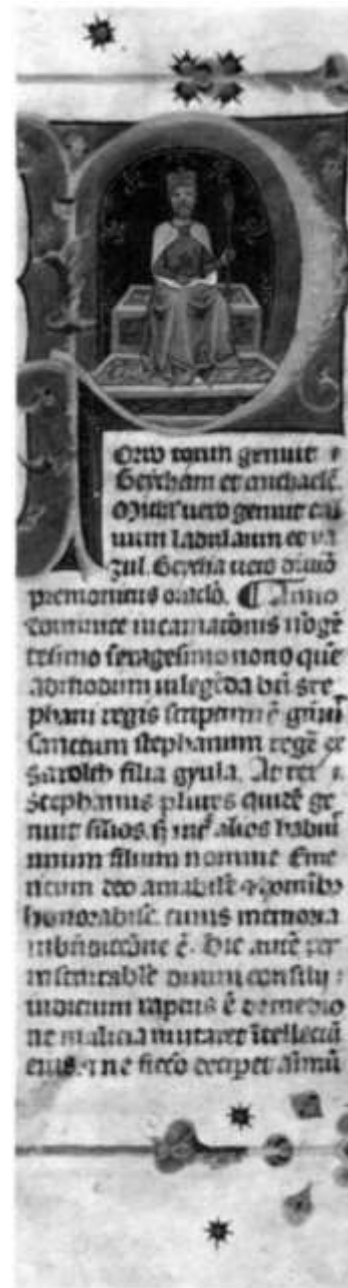 Orro toxun genuit ⁊
Geycham et michaelē.
Micha' uero genuit cal
uum Ladislaum et va
zul. Geycha uero diuīo
premonitus oraclo. ¶ Anno
dominice incarnatōnis nōgē
tesimo sexagesimo nono quē
admodum in legēda bti ste
phani regis scriptum ē genuī
sanctum stephanum regē ex
Saroltch filia gyula. At rex s.
Stephanus plures quidē ge
nuit filios. sꝫ int' alios habuī
unum filium nomine Eme
ricum deo amabilē ⁊ homībꝫ
honorabilē. cuius memoria
in bn̄diccōne ē. Hic autē per
inscrutabile diuini consilij
iudicium raptus ē de medio
ne malicia mutaret ītellectū
eius. ⁊ ne ficco deciperet aīmū